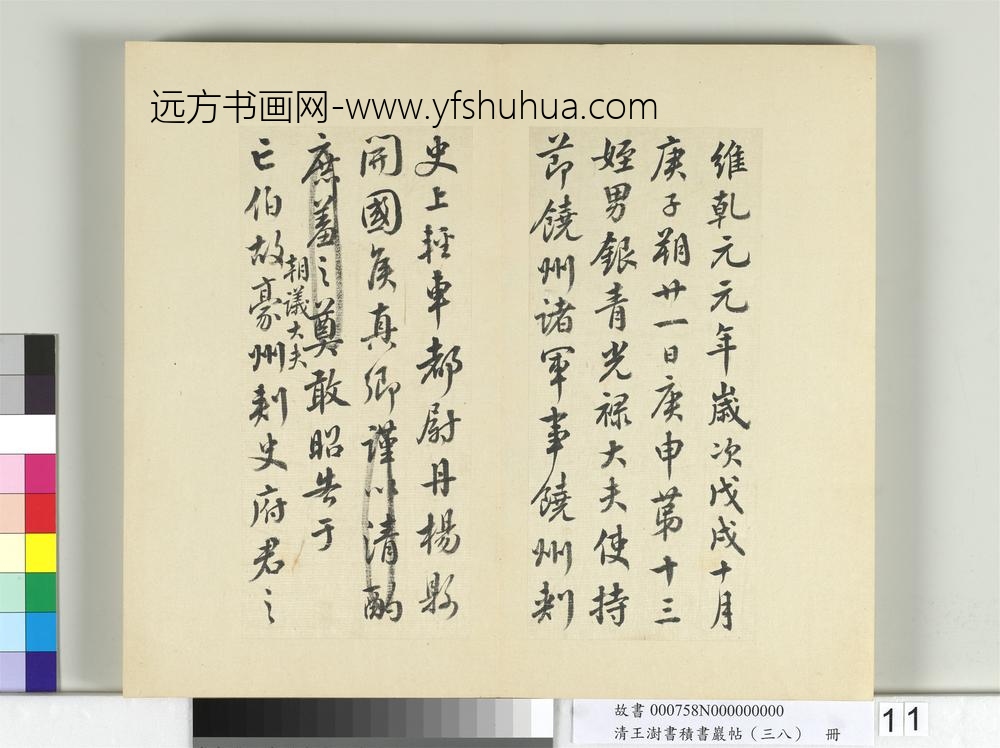 远方书画网-www.yfshuhua.com
維乾元元年歲次戊戌十月
庚子朔廿一日庚申第十三
姪男銀青光祿大夫使持
節饒州諸軍事饒州刺
史上輕車都尉丹楊縣
開國侯真卿謹以清酌
庶羞之奠敢昭告于
亡伯故豪州刺史府君之
朝議大夫
故書 000758N000000000
清王澍書積書巖帖(三八) 冊
11